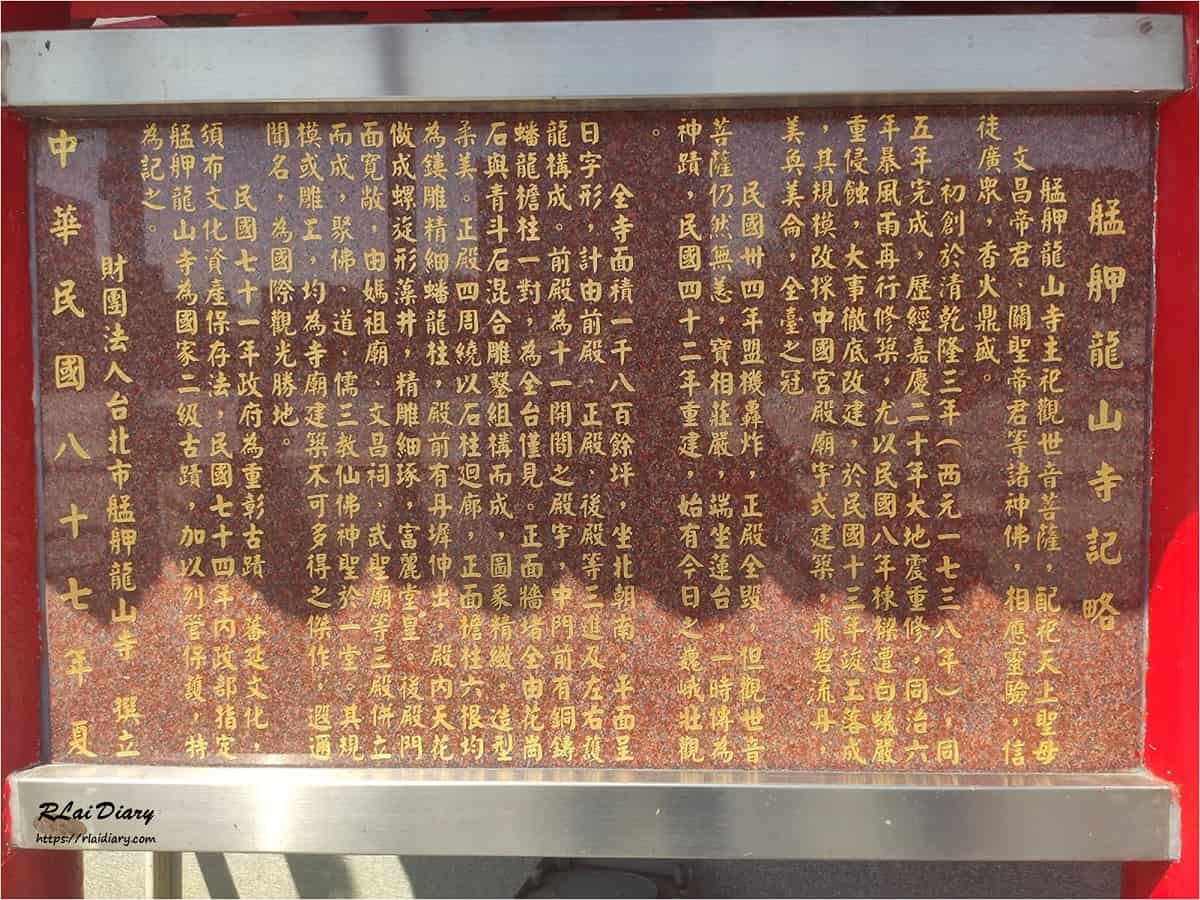 艋舺龍山寺記略
艋舺龍山寺主祀觀世音菩薩，配祀天上聖母
、文昌帝君、關聖帝君等諸神佛，相應靈驗，信
徒廣眾，香火鼎盛。
初創於清乾隆三年（西元一七三八年），同
五年完成，歷經嘉慶二十年大地震重修，同治六
年暴風雨再行修築，尤以民國八年棟樑遭白蟻嚴
重侵蝕，大事徹底改建，於民國十三年竣工落成
，其規模改採中國宮殿廟宇式建築，飛碧流丹，
美奐美侖，全臺之冠
民國卅四年盟機轟炸，正殿全毀，但觀世音
菩薩仍然無恙，寶相莊嚴，端坐蓮台，一時傳為
神蹟，民國四十二年重建，始有今日之巍峨壯觀
。
全寺面積一千八百餘坪，坐北朝南，平面呈
日字形，計由前殿、正殿、後殿等三進及左右護
龍構成。前殿為十一開間之殿宇，中門前有銅鑄
蟠龍檐柱一對，為全台僅見。正面牆堵全由花崗
石與青斗石混合雕鑿組構而成，圖象精緻，造型
柔美。正殿四周繞以石柱迴廊，正面檐柱六根均
為鏤雕精細蟠龍柱，殿前有丹墀伸出，殿內天花
做成螺旋形藻井，精雕細琢，富麗堂皇。後殿門
面寬敞，由媽祖廟、文昌祠、武聖廟等三殿併立
而成，聚佛、道、儒三教仙佛神聖於一堂。其規
模或雕工，均為寺廟建築不可多得之傑作，遐邇
聞名，為國際觀光勝地。
民國七十一年政府為重彰古蹟、蕃延文化，
須布文化資產保存法，民國七十四年內政部指定
艋舺龍山寺為國家二級古蹟，加以列管保護，特
為記之。
財團法人台北市艋舺龍山寺 撰立
中華民國八十七年夏
RLai Diary
https://rlaidiary.com